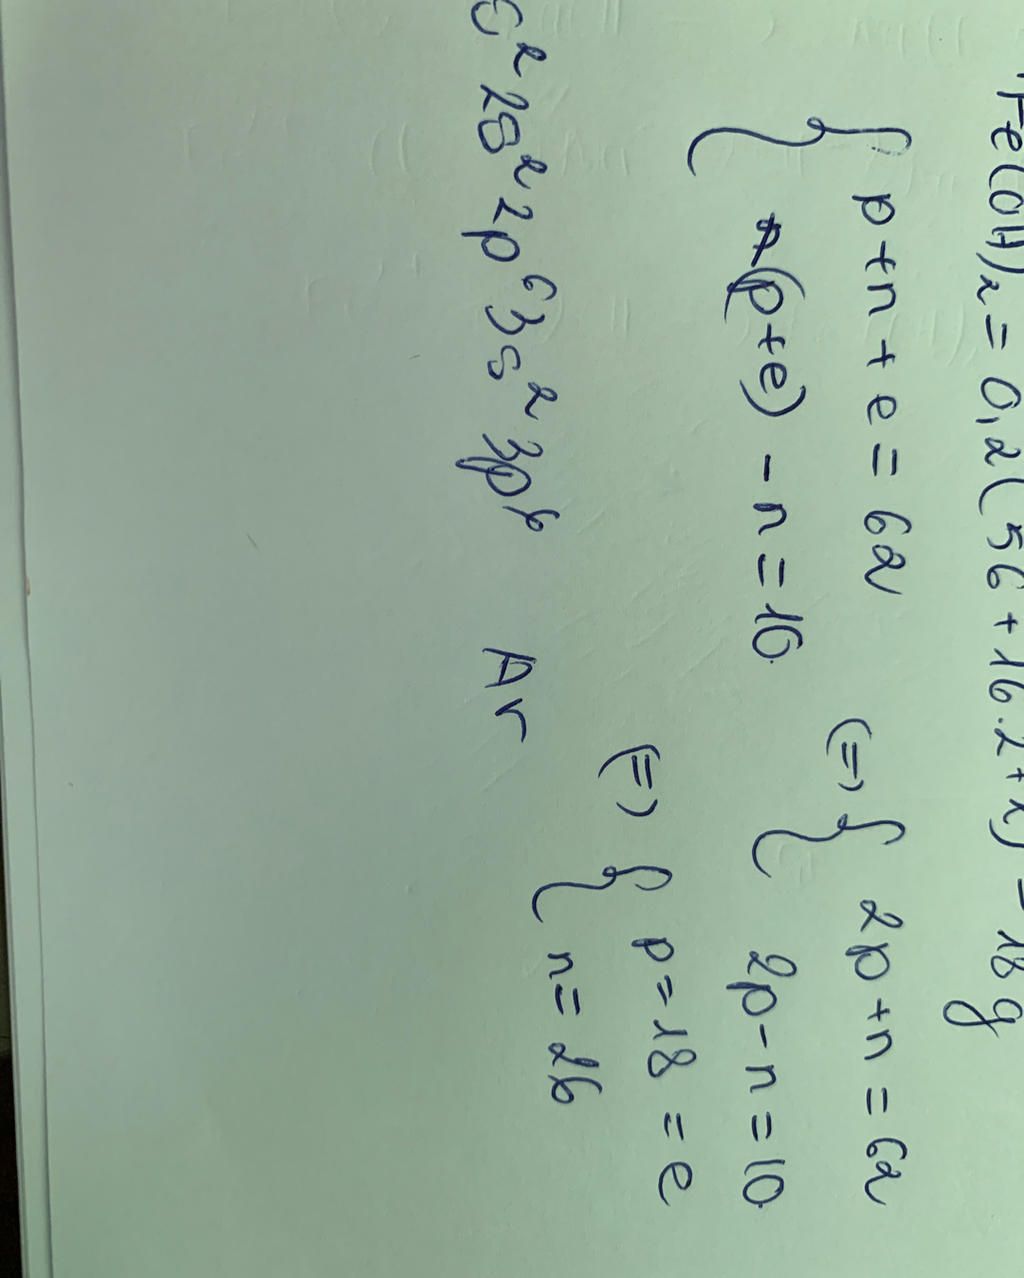 Fe(OH)₂ = 0,2(56 + 16.2 + 2) = 18 g
{ p + n + e = 62 (=) { 2p + n = 62
(p + e) - n = 10 2p - n = 10
(=) { p = 18 = e
n = 26
s² 2s² 2p⁶ 3s² 3p⁶ Ar